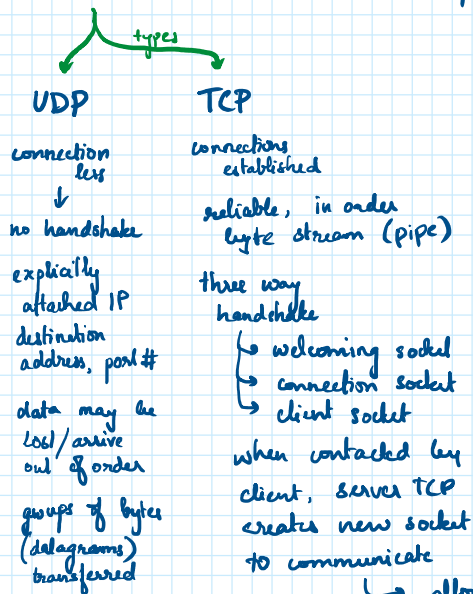 types
UDP
connection
less
no handshake
explicitly
attached IP
destination
address, port #
data may be
lost/arrive
out of order
groups of bytes
(datagrams)
transferred
TCP
connections
established
reliable, in order
byte stream (pipe)
three way
handshake
welcoming socket
connection socket
client socket
when contacted by
client, server TCP
creates new socket
to communicate